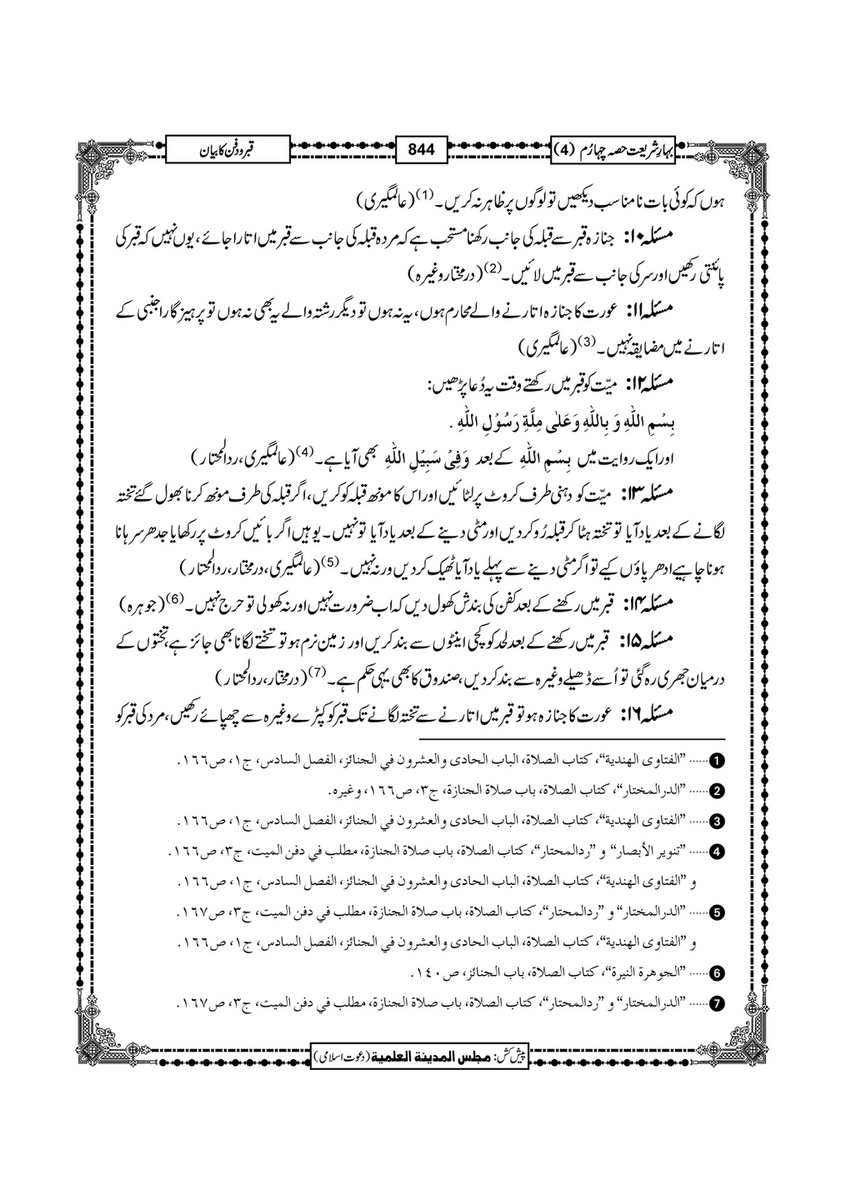 بہارِ شریعت حصہ چہارُم (4)
844
قبر و دفن کا بیان
ہوں کہ کوئی بات نامناسب دیکھیں تو لوگوں پر ظاہر نہ کریں۔(1) (عالمگیری)
مسئلہ ۱۰: جنازہ قبر سے قبلہ کی جانب رکھنا مستحب ہے کہ مردہ قبلہ کی جانب سے قبر میں اتارا جائے، یوں نہیں کہ قبر کی
پائنتی رکھیں اور سر کی جانب سے قبر میں لائیں۔(2) (درمختار وغیرہ)
مسئلہ ۱۱: عورت کا جنازہ اتارنے والے محارم ہوں، یہ نہ ہوں تو دیگر رشتہ والے یہ بھی نہ ہوں تو پرہیزگار اجنبی کے
اتارنے میں مضایقہ نہیں۔(3) (عالمگیری)
مسئلہ ۱۲: میّت کو قبر میں رکھتے وقت یہ دُعا پڑھیں:
بِسْمِ اللہِ وَ بِاللہِ وَعَلٰی مِلَّةِ رَسُوْلِ اللہِ .
اور ایک روایت میں بِسْمِ اللہِ کے بعد وَفِیْ سَبِیْلِ اللہِ بھی آیا ہے۔(4) (عالمگیری، ردالمحتار)
مسئلہ ۱۳: میّت کو دہنی طرف کروٹ پر لٹائیں اور اس کا مونھ قبلہ کو کریں، اگر قبلہ کی طرف مونھ کرنا بھول گئے تختہ
لگانے کے بعد یاد آیا تو تختہ ہٹا کر قبلہ رُو کر دیں اور مٹی دینے کے بعد یاد آیا تو نہیں۔ یوہیں اگر بائیں کروٹ پر رکھا یا جدھر سرہانا
ہونا چاہیے ادھر پاؤں کیے تو اگر مٹی دینے سے پہلے یاد آیا ٹھیک کر دیں ورنہ نہیں۔(5) (عالمگیری، درمختار، ردالمحتار)
مسئلہ ۱۴: قبر میں رکھنے کے بعد کفن کی بندش کھول دیں کہ اب ضرورت نہیں اور نہ کھولی تو حرج نہیں۔(6) (جوہرہ)
مسئلہ ۱۵: قبر میں رکھنے کے بعد لحد کو کچی اینٹوں سے بند کریں اور زمین نرم ہو تو تختے لگانا بھی جائز ہے، تختوں کے
درمیان جھری رہ گئی تو اُسے ڈھیلے وغیرہ سے بند کر دیں، صندوق کا بھی یہی حکم ہے۔(7) (درمختار، ردالمحتار)
مسئلہ ۱۶: عورت کا جنازہ ہو تو قبر میں اتارنے سے تختہ لگانے تک قبر کو کپڑے وغیرہ سے چھپائے رکھیں، مرد کی قبر کو
1 ...... "الفتاوی الهندية"، كتاب الصلاة، الباب الحادی والعشرون في الجنائز، الفصل السادس، ج١، ص١٦٦.
2 ...... "الدرالمختار"، كتاب الصلاة، باب صلاة الجنازة، ج٣، ص١٦٦، وغيره.
3 ...... "الفتاوی الهندية"، كتاب الصلاة، الباب الحادی والعشرون في الجنائز، الفصل السادس، ج١، ص١٦٦.
4 ...... "تنوير الأبصار" و "ردالمحتار"، كتاب الصلاة، باب صلاة الجنازة، مطلب في دفن الميت، ج٣، ص١٦٦.
و "الفتاوی الهندية"، كتاب الصلاة، الباب الحادی والعشرون في الجنائز، الفصل السادس، ج١، ص١٦٦.
5 ...... "الدرالمختار" و "ردالمحتار"، كتاب الصلاة، باب صلاة الجنازة، مطلب في دفن الميت، ج٣، ص١٦٧.
و "الفتاوی الهندية"، كتاب الصلاة، الباب الحادی والعشرون في الجنائز، الفصل السادس، ج١، ص١٦٦.
6 ...... "الجوهرة النيرة"، كتاب الصلاة، باب الجنائز، ص١٤٠.
7 ...... "الدرالمختار" و "ردالمحتار"، كتاب الصلاة، باب صلاة الجنازة، مطلب في دفن الميت، ج٣، ص١٦٧.
پیش کش: مجلس المدينة العلمية (دعوتِ اسلامی)